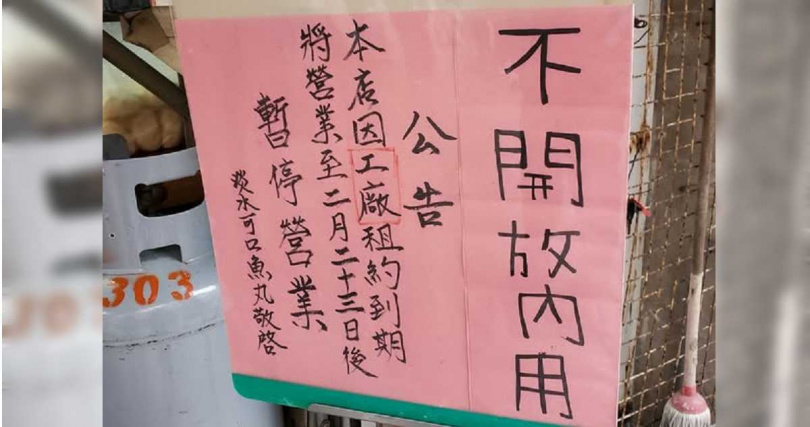 不開放內用
公告
本店因工廠租約到期
將營業至二月二十三日後
暫停營業
淡水可口魚丸敬啓
303